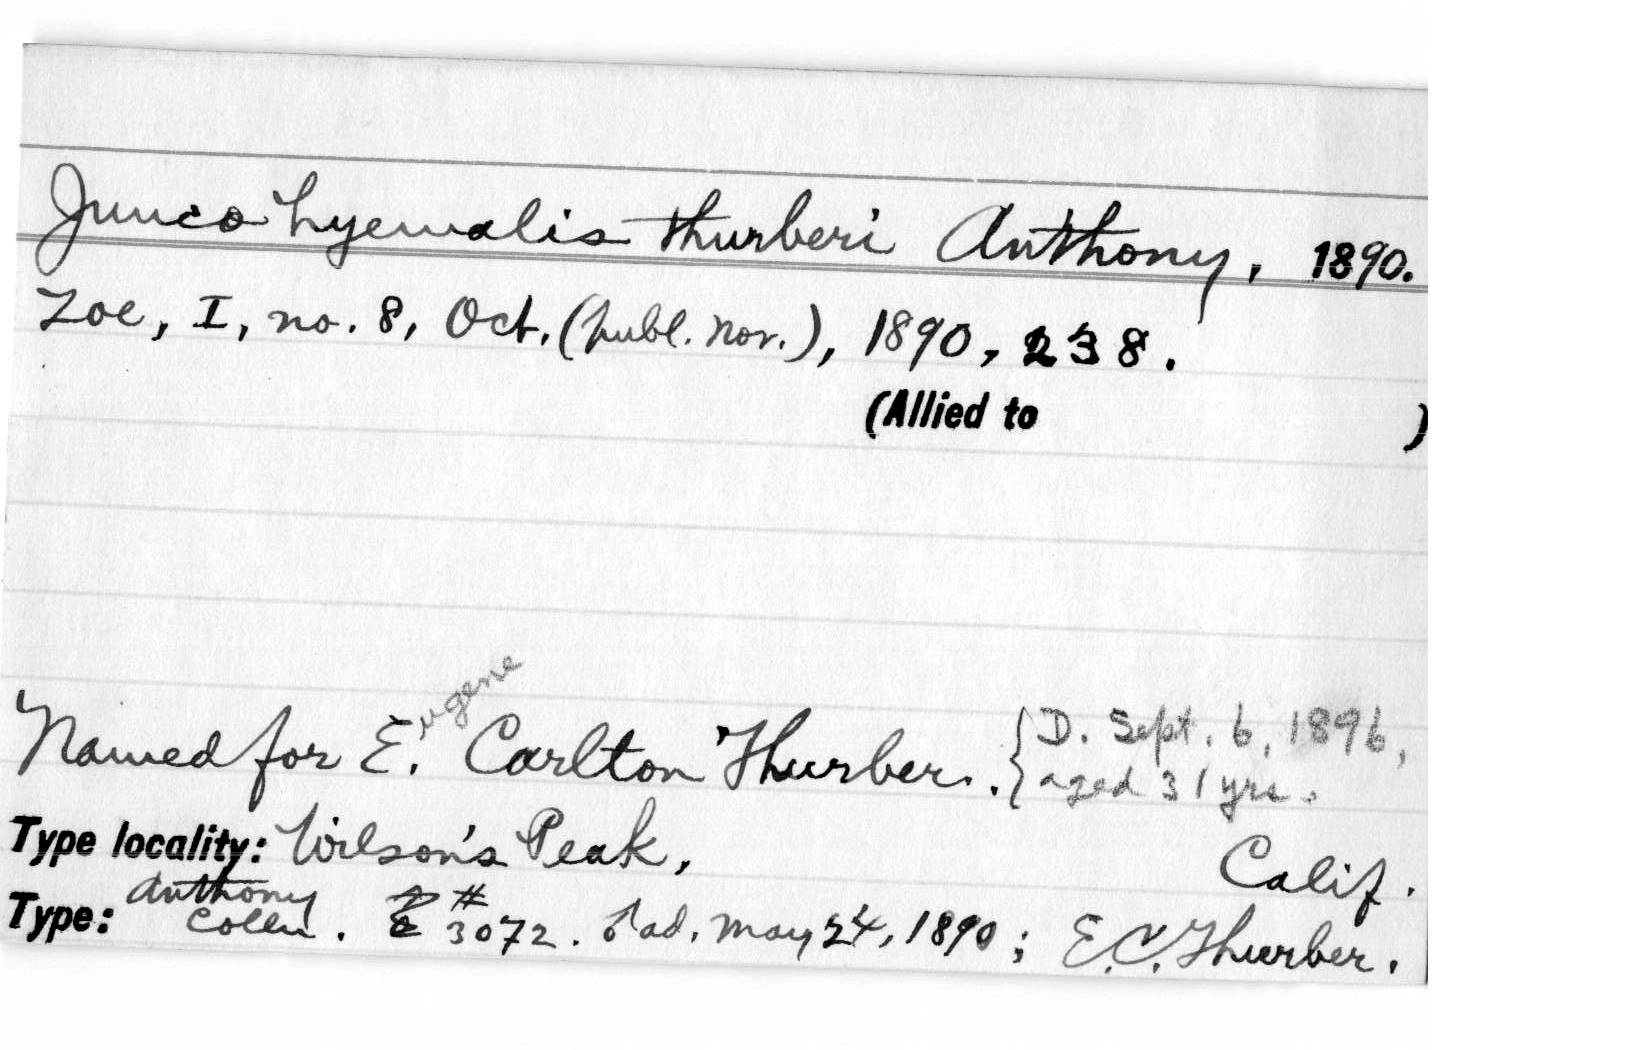 Junco hyemalis thurberi Anthony, 1890.
Zoe, I, no. 8, Oct. (publ. Nov.), 1890, 238.
(Allied to )
Named for E.ugene Carlton Thurber. {D. Sept. 6, 1896,
aged 31 yrs.
Type locality: Wilson's Peak, Calif.
Type: Anthony Colln. # 3072. ♂ ad. May 24, 1890; E.C. Thurber.